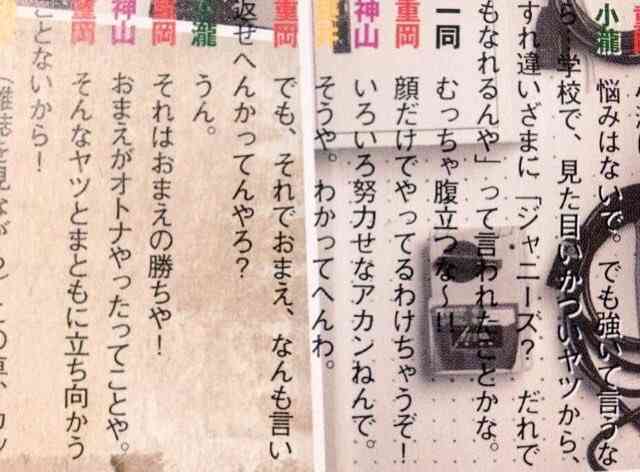 小瀧　悩みはないで。でも強いて言うな
ら…学校で、見た目いかついヤツから、
すれ違いざまに「ジャニーズ？　だれで
もなれるんや」って言われたことかな。
一同　むっちゃ腹立つな～!!
重岡　顔だけでやってるわけちゃうぞ！
神山　いろいろ努力せなアカンねんで。
そうや。わかってへんわ。
重岡　でも、それでおまえ、なんも言い
返せへんかってんやろ？
小瀧　うん。
重岡　それはおまえの勝ちや！
神山　おまえがオトナやったってことや。
重岡　そんなヤツとまともに立ち向かう
ことないから！